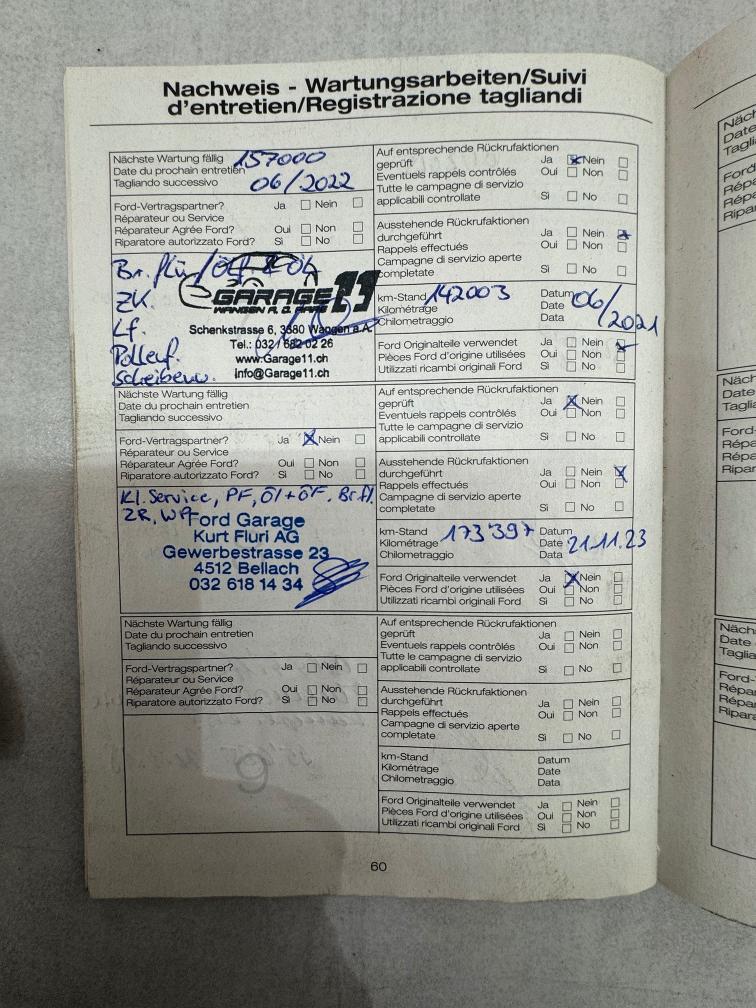 Nachweis - Wartungsarbeiten/Suivi
d'entretien/Registrazione tagliandi
Nächste Wartung fällig 157000
Date du prochain entretien
Tagliando successivo 06/2022
Ford-Vertragspartner? Ja Nein
Réparateur ou Service
Réparateur Agrée Ford? Oui Non
Riparatore autorizzato Ford? Sì No
Br.flü/
ZK.
GARAGE 11
WANGEN A. D. AARE
Lf. Schenkstrasse 6, 3380 Wangen a.A.
Tel.: 032 / 682 02 26
Pollenf. www.Garage11.ch
Scheibenw. info@Garage11.ch
Auf entsprechende Rückrufaktionen
geprüft Ja Nein
Eventuels rappels contrôlés Oui Non
Tutte le campagne di servizio
applicabili controllate Sì No
Ausstehende Rückrufaktionen
durchgeführt Ja Nein
Rappels effectués Oui Non
Campagne di servizio aperte
completate Sì No
km-Stand 142003 Datum 06/2021
Kilométrage Date
Chilometraggio Data
Ford Originalteile verwendet Ja Nein
Pièces Ford d'origine utilisées Oui Non
Utilizzati ricambi originali Ford Sì No
Nächste Wartung fällig
Date du prochain entretien
Tagliando successivo
Ford-Vertragspartner? Ja Nein
Réparateur ou Service
Réparateur Agrée Ford? Oui Non
Riparatore autorizzato Ford? Sì No
Kl. Service, PF, Öl+ÖF, Br.fl.
ZR, WP
Ford Garage
Kurt Fluri AG
Gewerbestrasse 23
4512 Bellach
032 618 14 34
Auf entsprechende Rückrufaktionen
geprüft Ja Nein
Eventuels rappels contrôlés Oui Non
Tutte le campagne di servizio
applicabili controllate Sì No
Ausstehende Rückrufaktionen
durchgeführt Ja Nein
Rappels effectués Oui Non
Campagne di servizio aperte
completate Sì No
km-Stand 173'397 Datum
Kilométrage Date 21.11.23
Chilometraggio Data
Ford Originalteile verwendet Ja Nein
Pièces Ford d'origine utilisées Oui Non
Utilizzati ricambi originali Ford Sì No
Nächste Wartung fällig
Date du prochain entretien
Tagliando successivo
Ford-Vertragspartner? Ja Nein
Réparateur ou Service
Réparateur Agrée Ford? Oui Non
Riparatore autorizzato Ford? Sì No
Auf entsprechende Rückrufaktionen
geprüft Ja Nein
Eventuels rappels contrôlés Oui Non
Tutte le campagne di servizio
applicabili controllate Sì No
Ausstehende Rückrufaktionen
durchgeführt Ja Nein
Rappels effectués Oui Non
Campagne di servizio aperte
completate Sì No
km-Stand Datum
Kilométrage Date
Chilometraggio Data
Ford Originalteile verwendet Ja Nein
Pièces Ford d'origine utilisées Oui Non
Utilizzati ricambi originali Ford Sì No
60